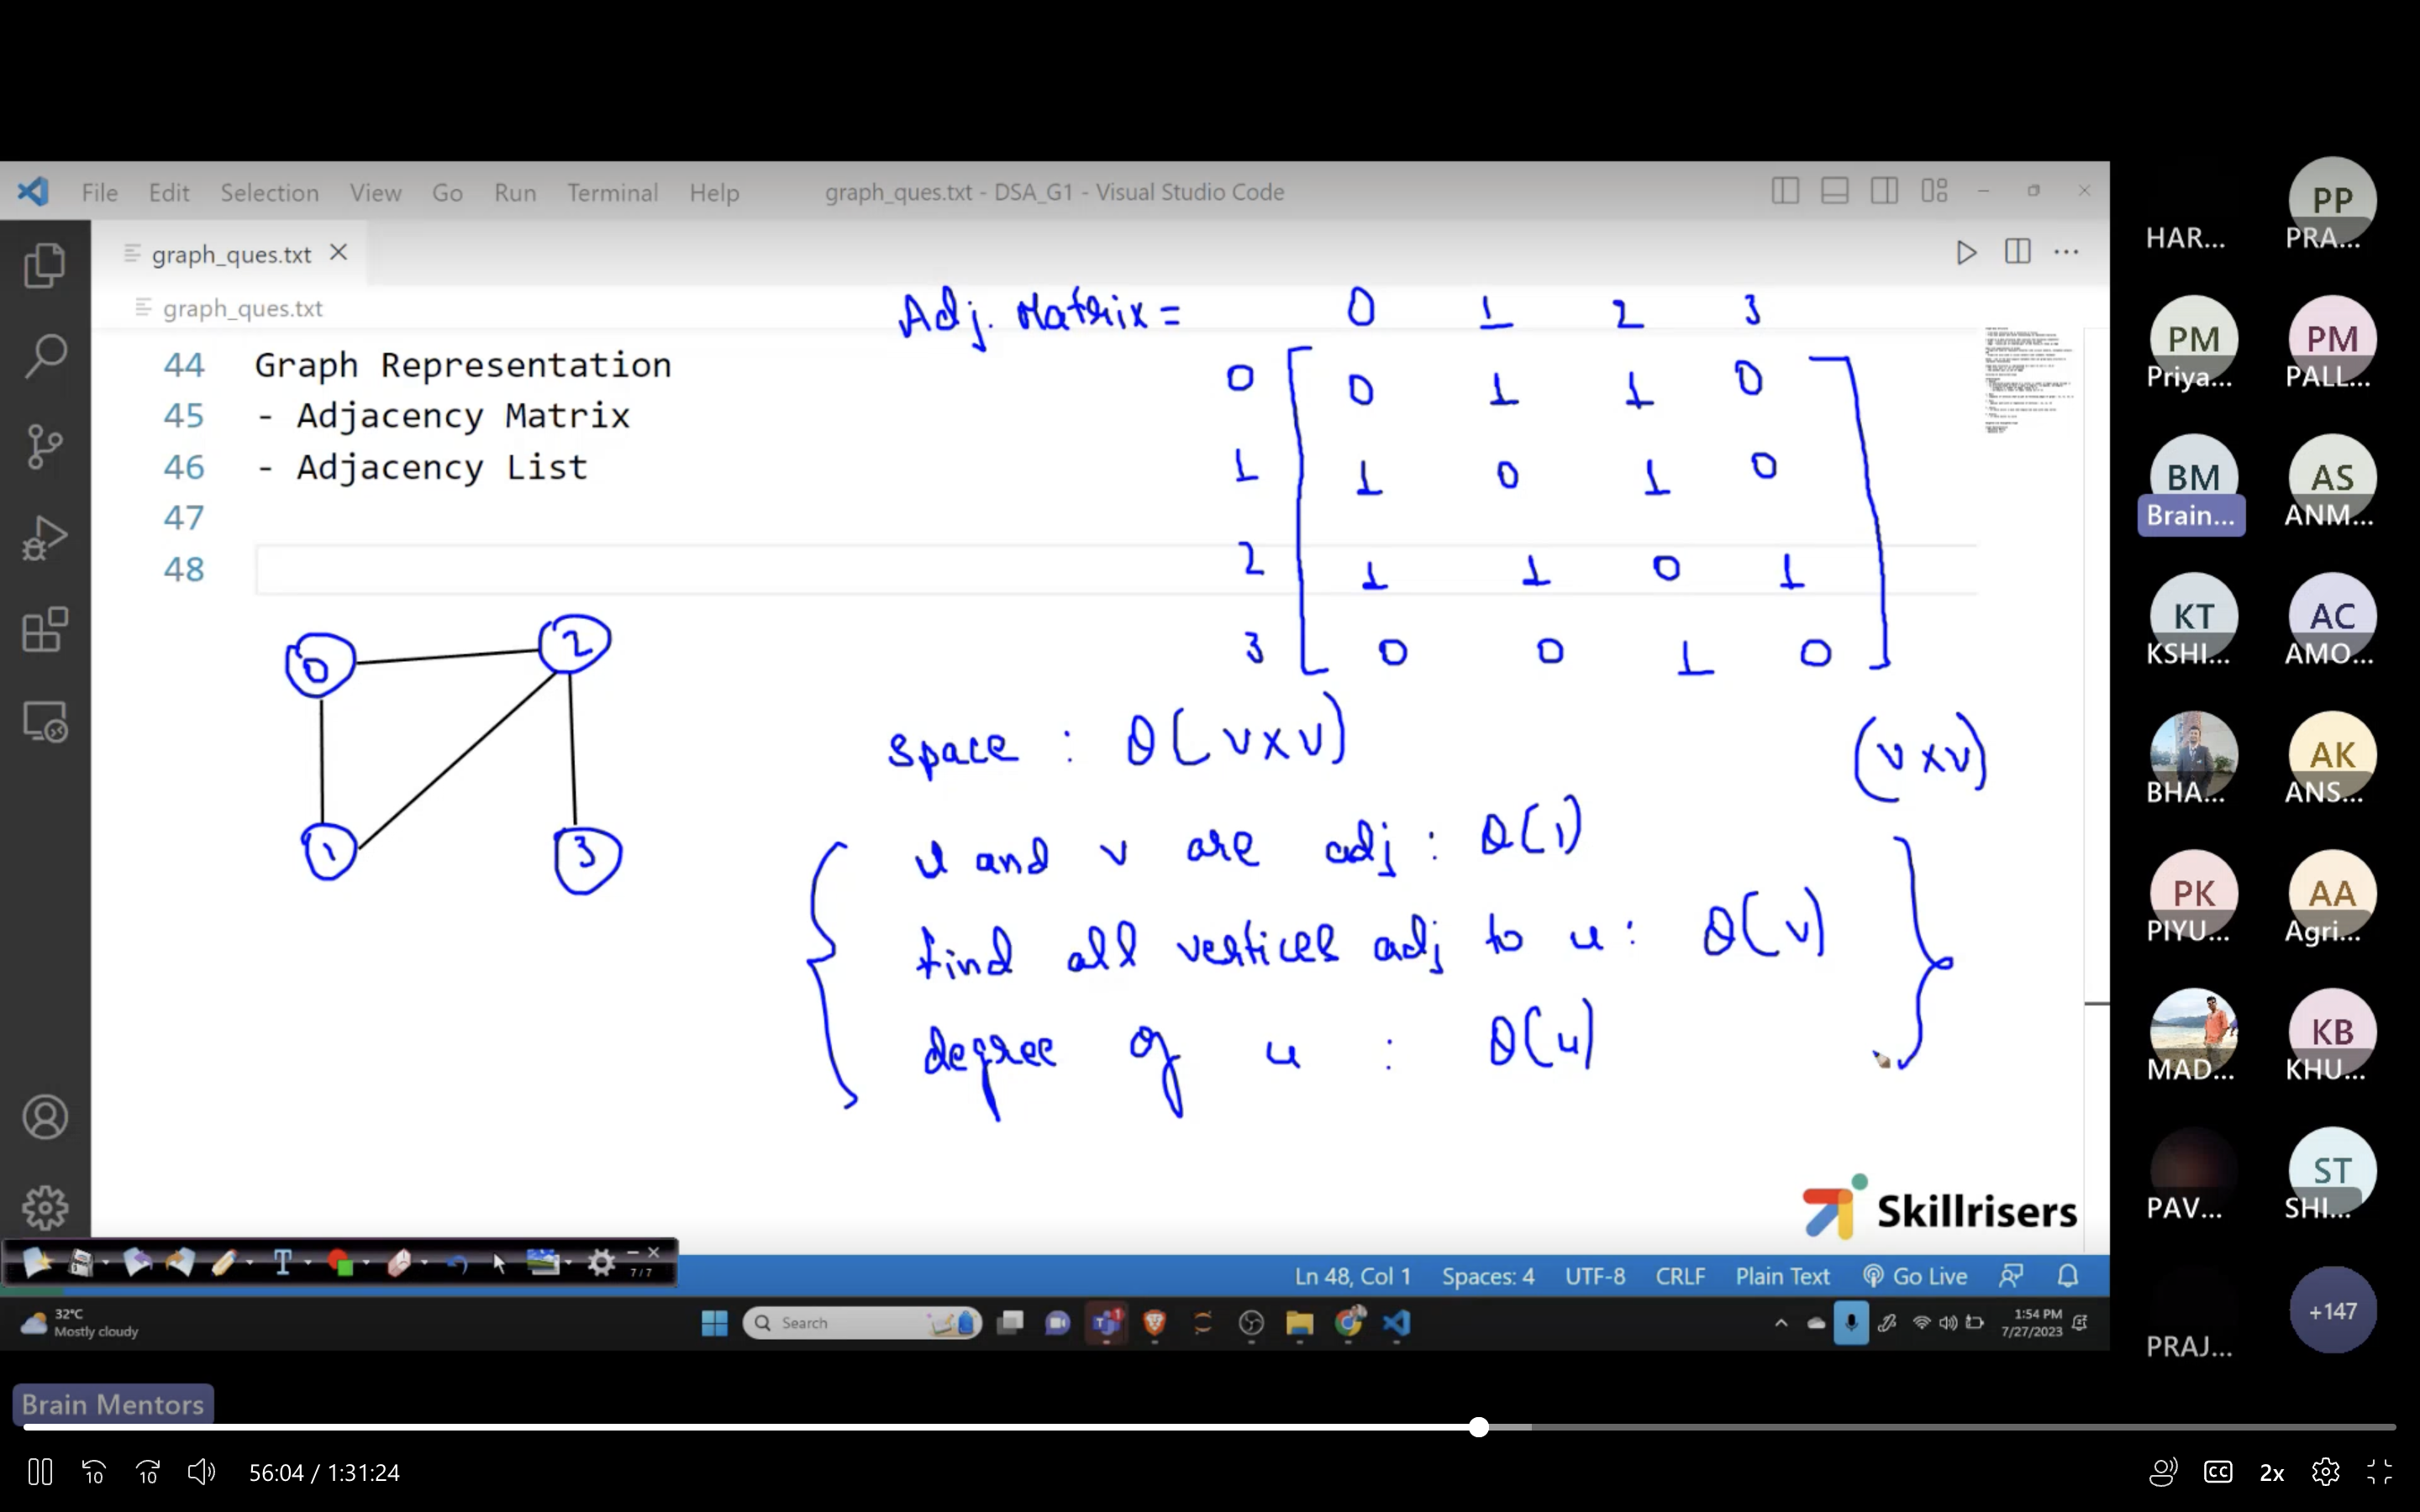 File Edit Selection View Go Run Terminal Help graph_ques.txt - DSA_G1 - Visual Studio Code
graph_ques.txt
graph_ques.txt
44 Graph Representation
45 - Adjacency Matrix
46 - Adjacency List
47
48
Adj. Matrix =
0 1 2 3
0 0 1 1 0
1 1 0 1 0
2 1 1 0 1
3 0 0 1 0
0 2
1 3
Space : θ(v×v)
(v×v)
u and v are adj : θ(1)
find all vertices adj to u : θ(v)
degree of u : θ(u)
Skillrisers
7/7
Ln 48, Col 1 Spaces: 4 UTF-8 CRLF Plain Text Go Live
32°C
Mostly cloudy
Search
1:54 PM
7/27/2023
HAR...
PP
PRA...
PM
Priya...
PM
PALL...
BM
Brain...
AS
ANM...
KT
KSHI...
AC
AMO...
BHA...
AK
ANS...
PK
PIYU...
AA
Agri...
MAD...
KB
KHU...
PAV...
ST
SHI...
PRAJ...
+147
Brain Mentors
10 10 56:04 / 1:31:24
CC 2x